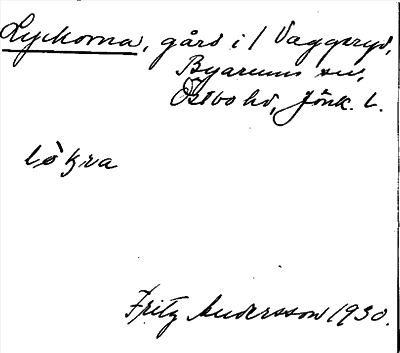 Lyckorna, gård i / Vaggeryd,
Byarums sn,
Östbo hd, Jönk. l.
lò̀kra
Fritz Andersson 1930.